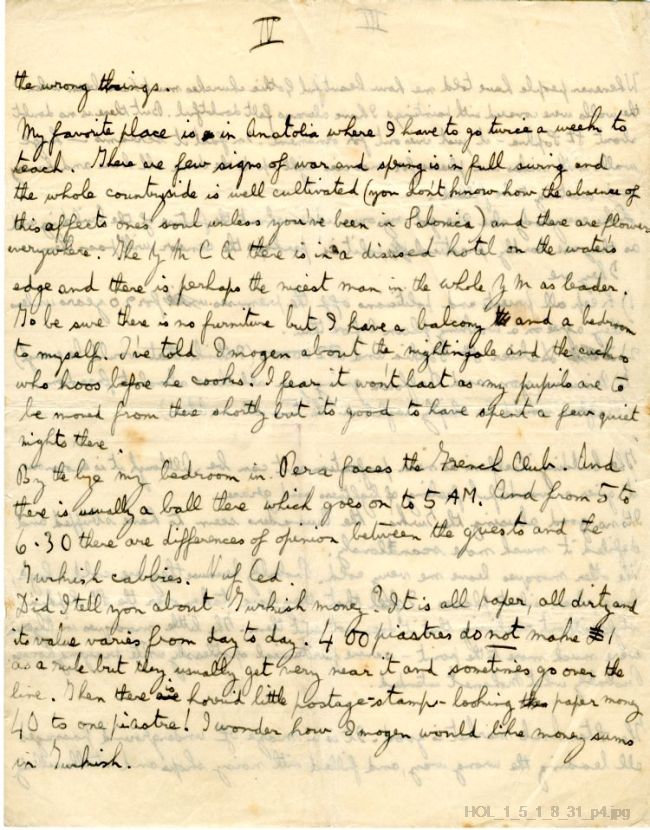 IV
the wrong things.
My favorite place is in Anatolia where I have to go twice a week to
teach. There are few signs of war and spring is in full swing and
the whole countryside is well cultivated (you don't know how the absence of
this affects one's soul unless you've been in Salonica) and there are flowers
everywhere. The Y M C A there is in a disused hotel on the water's
edge and there is perhaps the nicest man in the whole Y M as leader.
To be sure there is no furniture but I have a balcony and a bedroom
to myself. I've told Imogen about the nightingale and the cuckoo
who hoos before he cooks. I fear it won't last as my pupils are to
be moved from there shortly but it's good to have spent a few quiet
nights there.
By the bye my bedroom in Pera faces the French Club. And
there is usually a ball there which goes on to 5 AM. And from 5 to
6.30 there are differences of opinion between the guests and the
Turkish cabbies. Nuf Ced.
Did I tell you about Turkish money? It is all paper, all dirty and
its value varies from day to day. 400 piastres do not make £1
as a rule but they usually get very near it and sometimes go over the
line. Then there are horrid little postage-stamp-looking paper money
40 to one piastre! I wonder how Imogen would like money sums
in Turkish.
HOL_1_5_1_8_31_p4.jpg